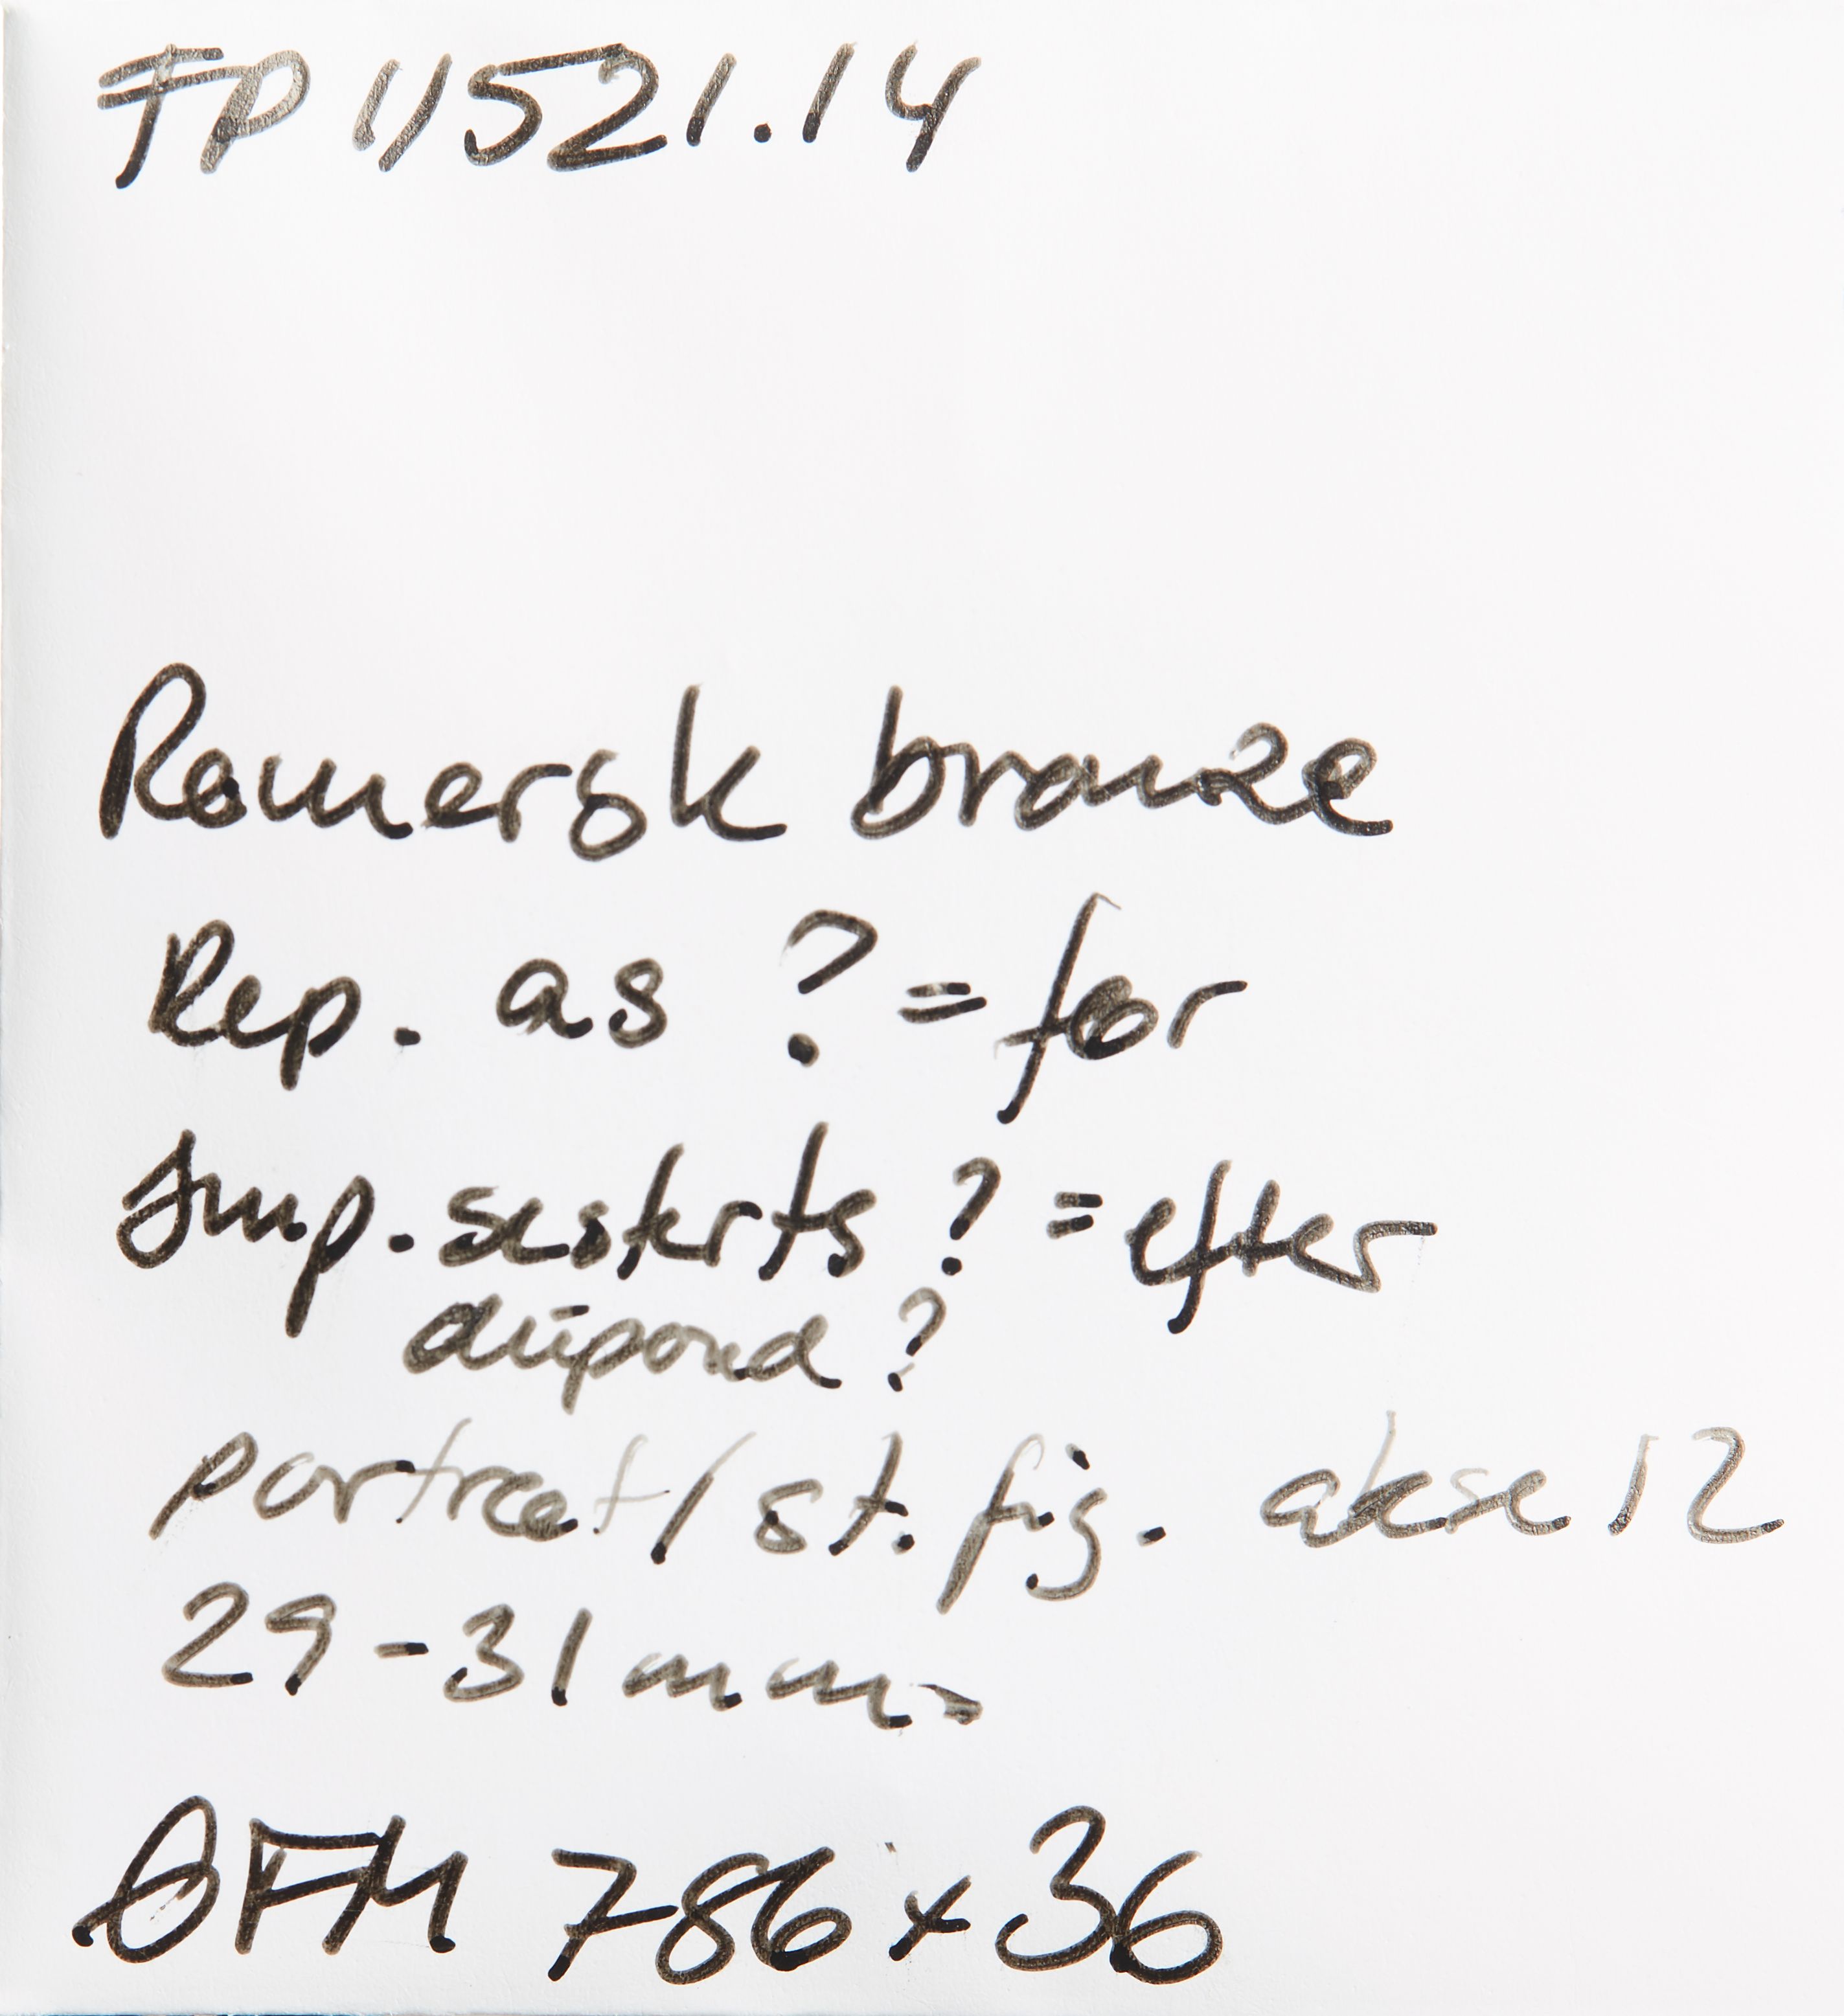 FP 11521.14
Romersk bronze
Rep. as ? = før
Imp. sesterts ? = efter
dupond ?
portræt / st. fig. akse 12
29-31 mm
ØFM 786x36